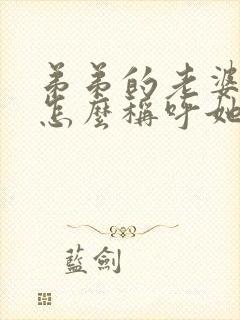 弟弟的老婆
怎麼稱呼她
藍劍